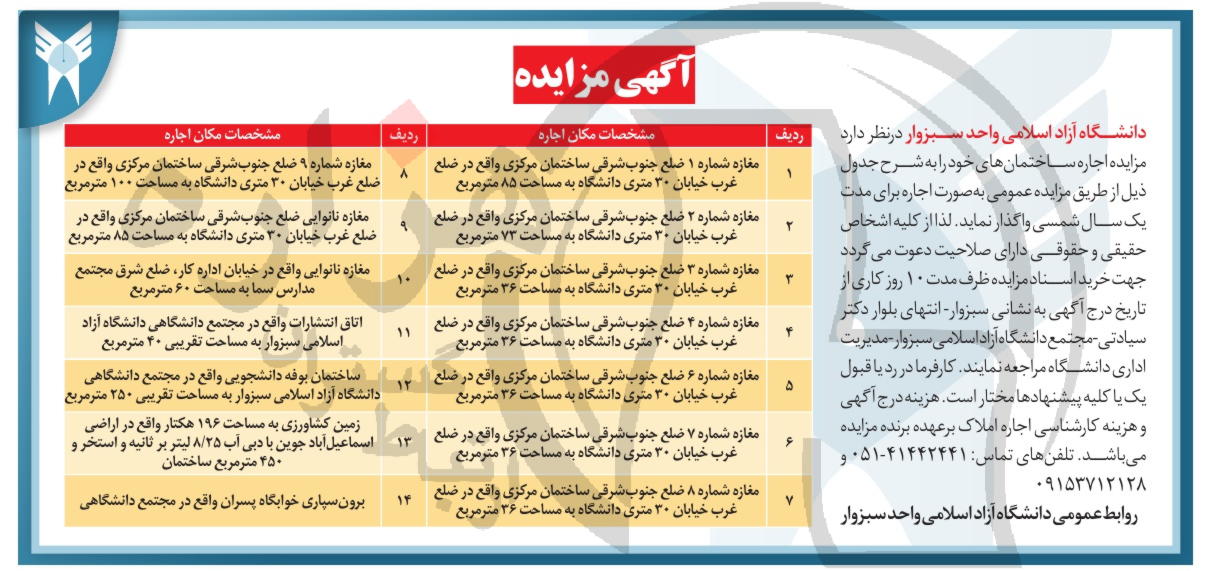 آگهی مزایده
دانشگاه آزاد اسلامی واحد سبزوار درنظر دارد
مزایده اجاره ساختمان‌های خود را به شرح جدول
ذیل از طریق مزایده عمومی به‌صورت اجاره برای مدت
یک سال شمسی واگذار نماید. لذا از کلیه اشخاص
حقیقی و حقوقی دارای صلاحیت دعوت می گردد
جهت خرید اسناد مزایده ظرف مدت ۱۰ روز کاری از
تاریخ درج آگهی به نشانی سبزوار- انتهای بلوار دکتر
سیادتی-مجتمع دانشگاه آزاد اسلامی سبزوار-مدیریت
اداری دانشگاه مراجعه نمایند. کارفرما در رد یا قبول
یک یا کلیه پیشنهادها مختار است. هزینه درج آگهی
و هزینه کارشناسی اجاره املاک برعهده برنده مزایده
می‌باشد. تلفن‌های تماس: ۴۱۴۴۲۴۴۱-۰۵۱ و
۰۹۱۵۳۷۱۲۱۲۸
روابط عمومی دانشگاه آزاد اسلامی واحد سبزوار
ردیف مشخصات مکان اجاره
۱ مغازه شماره ۱ ضلع جنوب‌شرقی ساختمان مرکزی واقع در ضلع
غرب خیابان ۳۰ متری دانشگاه به مساحت ۸۵ مترمربع
۲ مغازه شماره ۲ ضلع جنوب‌شرقی ساختمان مرکزی واقع در ضلع
غرب خیابان ۳۰ متری دانشگاه به مساحت ۷۳ مترمربع
۳ مغازه شماره ۳ ضلع جنوب‌شرقی ساختمان مرکزی واقع در ضلع
غرب خیابان ۳۰ متری دانشگاه به مساحت ۳۶ مترمربع
۴ مغازه شماره ۴ ضلع جنوب‌شرقی ساختمان مرکزی واقع در ضلع
غرب خیابان ۳۰ متری دانشگاه به مساحت ۳۶ مترمربع
۵ مغازه شماره ۶ ضلع جنوب‌شرقی ساختمان مرکزی واقع در ضلع
غرب خیابان ۳۰ متری دانشگاه به مساحت ۳۶ مترمربع
۶ مغازه شماره ۷ ضلع جنوب‌شرقی ساختمان مرکزی واقع در ضلع
غرب خیابان ۳۰ متری دانشگاه به مساحت ۳۶ مترمربع
۷ مغازه شماره ۸ ضلع جنوب‌شرقی ساختمان مرکزی واقع در ضلع
غرب خیابان ۳۰ متری دانشگاه به مساحت ۳۶ مترمربع
ردیف مشخصات مکان اجاره
۸ مغازه شماره ۹ ضلع جنوب‌شرقی ساختمان مرکزی واقع در
ضلع غرب خیابان ۳۰ متری دانشگاه به مساحت ۱۰۰ مترمربع
۹ مغازه نانوایی ضلع جنوب‌شرقی ساختمان مرکزی واقع در
ضلع غرب خیابان ۳۰ متری دانشگاه به مساحت ۸۵ مترمربع
۱۰ مغازه نانوایی واقع در خیابان اداره کار، ضلع شرق مجتمع
مدارس سما به مساحت ۶۰ مترمربع
۱۱ اتاق انتشارات واقع در مجتمع دانشگاهی دانشگاه آزاد
اسلامی سبزوار به مساحت تقریبی ۴۰ مترمربع
۱۲ ساختمان بوفه دانشجویی واقع در مجتمع دانشگاهی
دانشگاه آزاد اسلامی سبزوار به مساحت تقریبی ۲۵۰ مترمربع
۱۳ زمین کشاورزی به مساحت ۱۹۶ هکتار واقع در اراضی
اسماعیل‌آباد جوین با دبی آب ۸/۲۵ لیتر بر ثانیه و استخر و
۴۵۰ مترمربع ساختمان
۱۴ برون‌سپاری خوابگاه پسران واقع در مجتمع دانشگاهی
هزاره